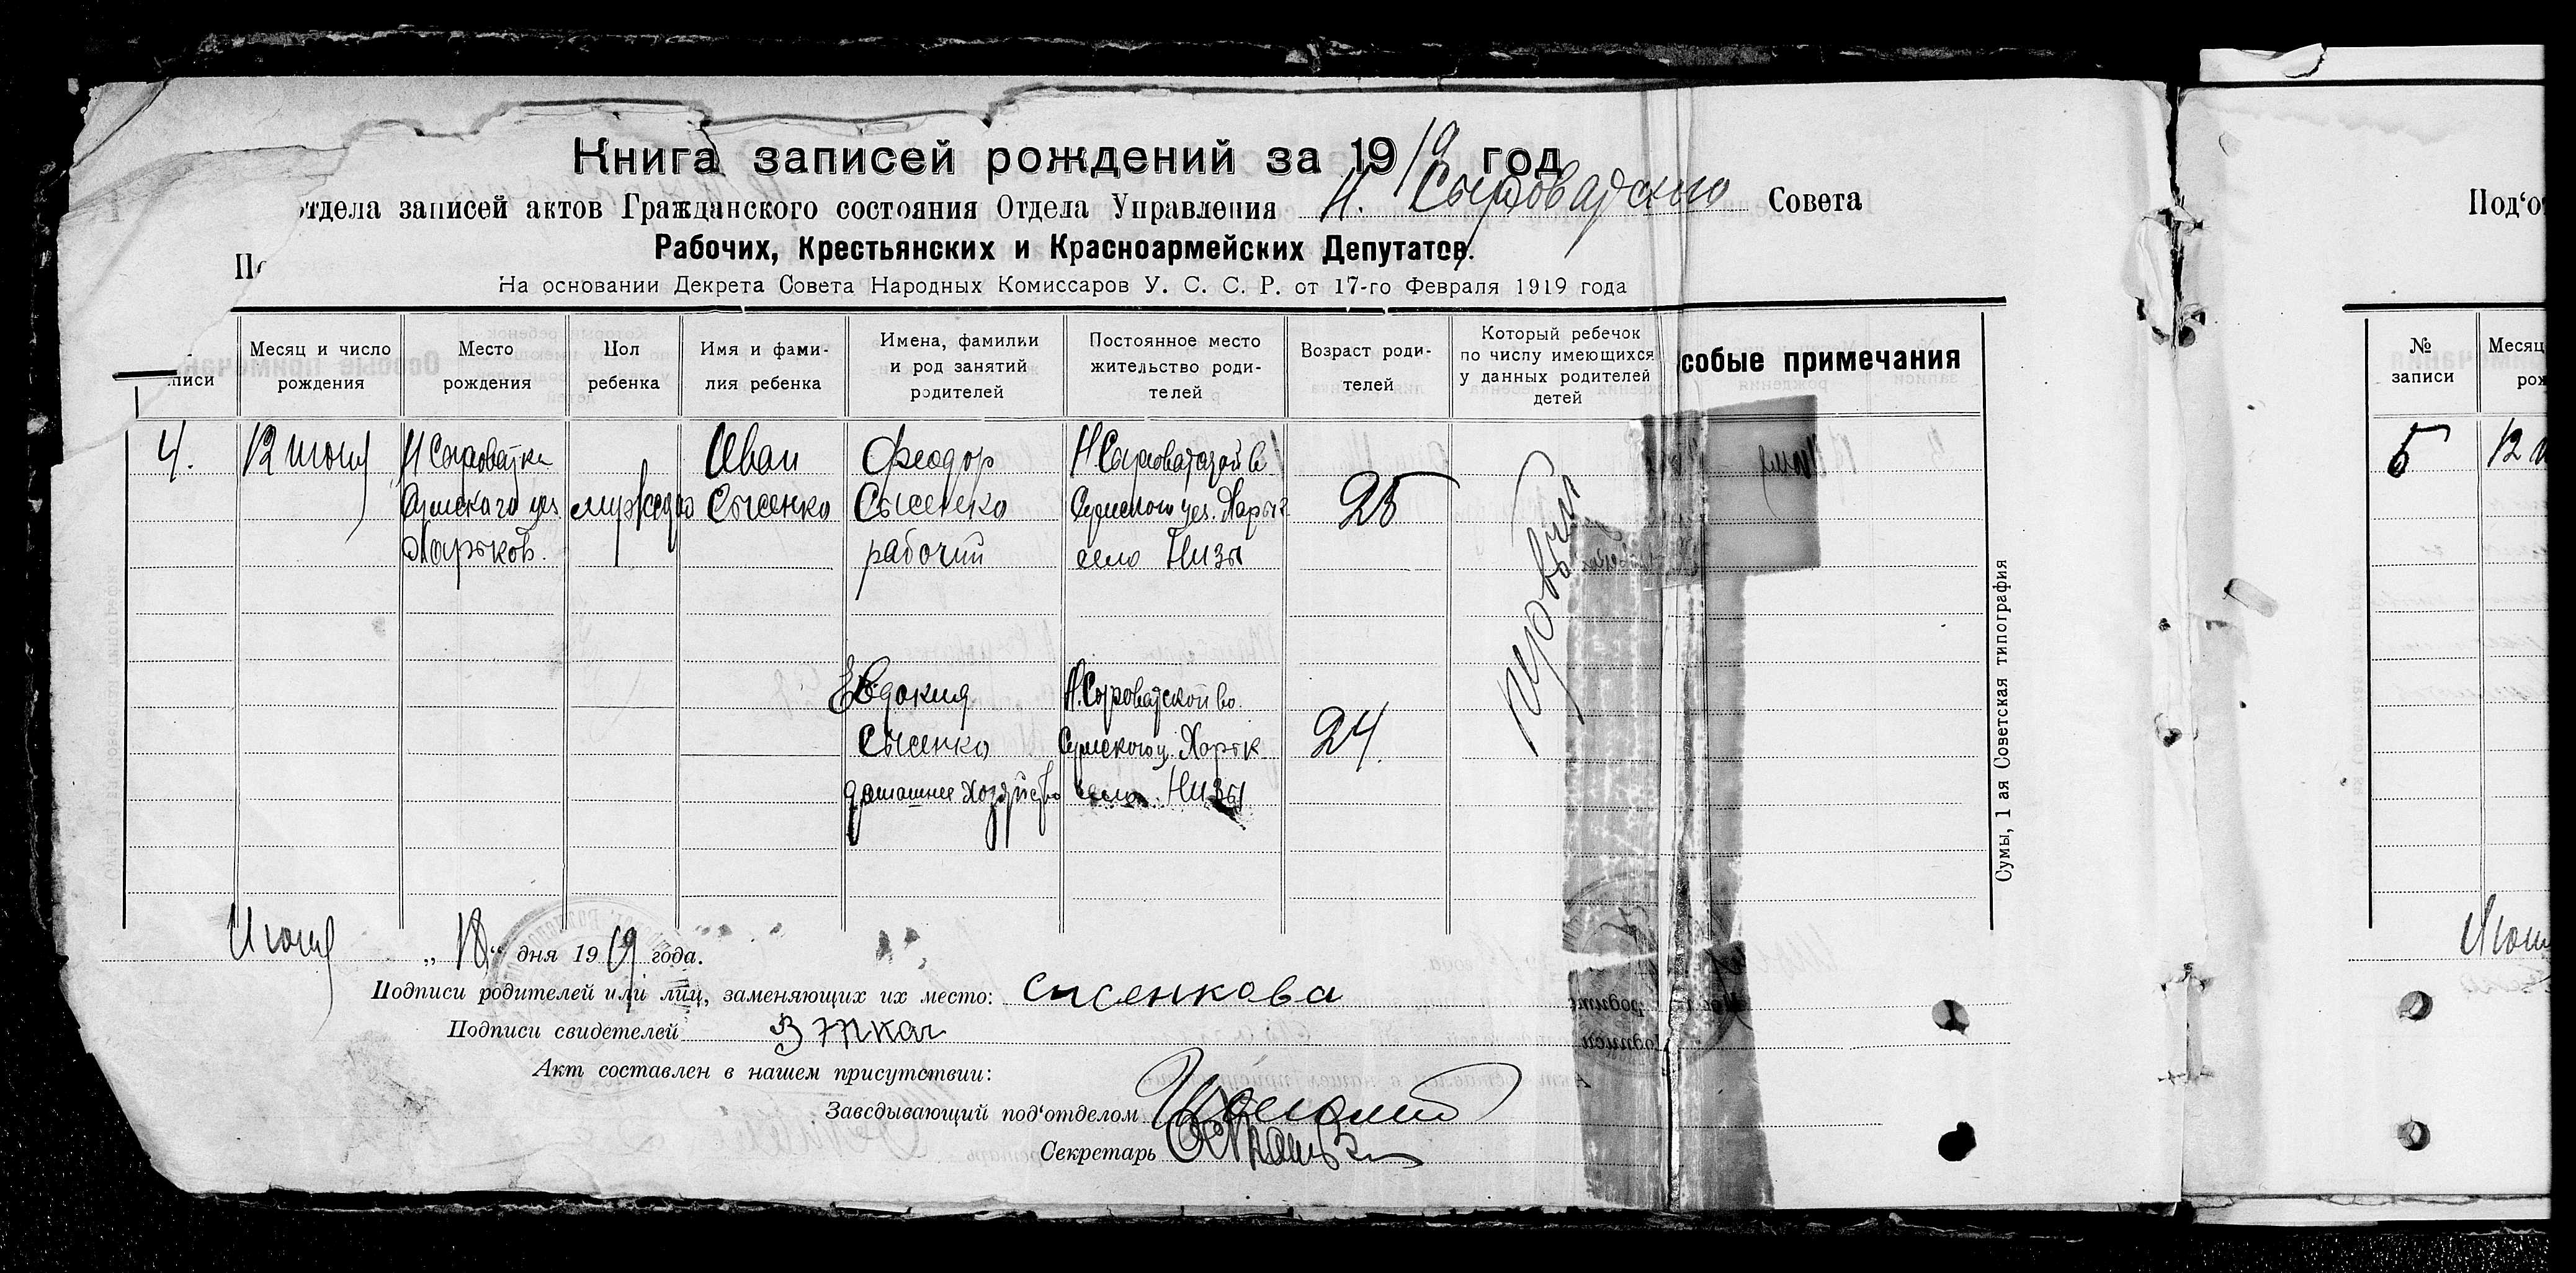 Книга записей рождений за 1919 год
отдела записей актов Гражданского состояния Отдела Управления Н. Сыроватского Совета
Рабочих, Крестьянских и Красноармейских Депутатов.
На основании Декрета Совета Народных Комиссаров У. С. С. Р. от 17-го Февраля 1919 года
писи
Месяц и число рождения
Место рождения
Пол ребенка
Имя и фами-
лия ребенка
Имена, фамилки
и род занятий
родителей
Постоянное место
жительство роди-
телей
Возраст роди-
телей
Который ребечок
по числу имеющихся
у данных родителей
детей
собые примечания
4.
12 июня
Н Сыроватка
Сумскаго уез
Харьков.
мужской
Иван
Сысенко
Феодор
Сысенко
рабочий
Н Сыроватской в
Сумского уез. Харьк
село Низы
25
первый
Евдокия
Сысенко
домашнее хозяйство
Н. Сыроватской во.
Сумского у. Харьк
село Низы
24.
Июня „18“ дня 1919 года.
Подписи родителей или лиц, заменяющих их место: Сысенкова
Подписи свидетелей
Акт составлен в нашем присутствии:
Заведывающий под‘отделом
Секретарь
Сумы, 1 ая Советская типография
Под‘о
№
записи
Месяц
рож
5
12 и
Июн